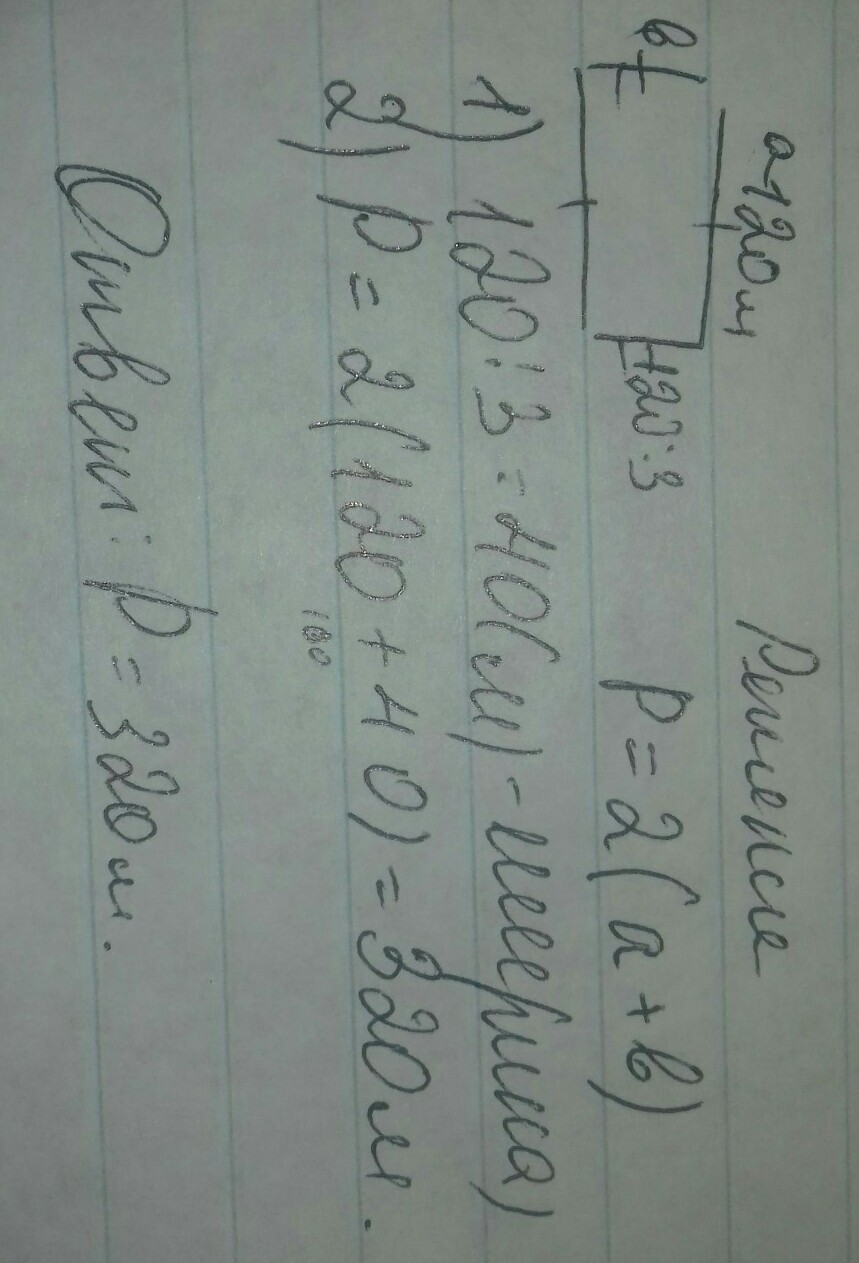 a 120 м
Решение
в
120:3
P = 2(a + в)
1) 120 : 3 = 40(м) - ширина)
2) P = 2(120 + 40) = 320 м.
160
Ответ: P = 320 м.